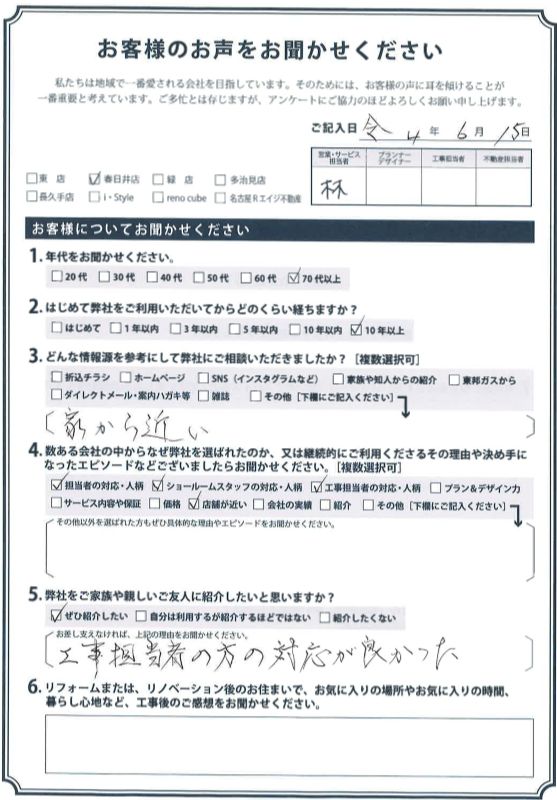 お客様のお声をお聞かせください
私たちは地域で一番愛される会社を目指しています。そのためには、お客様の声に耳を傾けることが
一番重要と考えています。ご多忙とは存じますが、アンケートにご協力のほどよろしくお願い申し上げます。
ご記入日 令 4 年 6 月 15 日
営業・サービス担当者 プランナーデザイナー 工事担当者 不動産担当者
林
□東 店 ☑春日井店 □緑 店 □多治見店
□長久手店 □i・Style □reno cube □名古屋Rエイジ不動産
お客様についてお聞かせください
1. 年代をお聞かせください。
□20代 □30代 □40代 □50代 □60代 ☑70代以上
2. はじめて弊社をご利用いただいてからどのくらい経ちますか？
□はじめて □1年以内 □3年以内 □5年以内 □10年以内 ☑10年以上
3. どんな情報源を参考にして弊社にご相談いただきましたか？［複数選択可］
□折込チラシ □ホームページ □SNS（インスタグラムなど） □家族や知人からの紹介 □東邦ガスから
□ダイレクトメール・案内ハガキ等 □雑誌 □その他［下欄にご記入ください］
家から近い
4. 数ある会社の中からなぜ弊社を選ばれたのか、又は継続的にご利用くださるその理由や決め手に
なったエピソードなどございましたらお聞かせください。［複数選択可］
☑担当者の対応・人柄 ☑ショールームスタッフの対応・人柄 ☑工事担当者の対応・人柄 □プラン&デザイン力
□サービス内容や保証 □価格 ☑店舗が近い □会社の実績 □紹介 □その他［下欄にご記入ください］
その他以外を選ばれた方もぜひ具体的な理由やエピソードをお聞かせください。
5. 弊社をご家族や親しいご友人に紹介したいと思いますか？
☑ぜひ紹介したい □自分は利用するが紹介するほどではない □紹介したくない
お差し支えなければ、上記の理由をお聞かせください。
工事担当者の方の対応が良かった
6. リフォームまたは、リノベーション後のお住まいで、お気に入りの場所やお気に入りの時間、
暮らし心地など、工事後のご感想をお聞かせください。